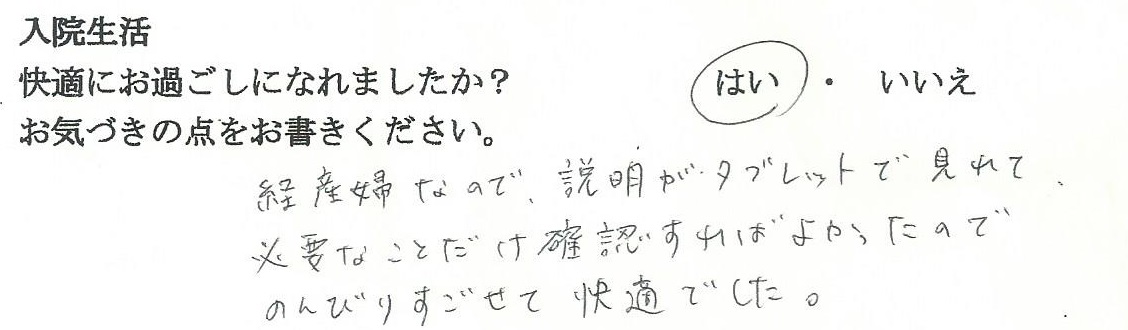 入院生活
快適にお過ごしになれましたか？ はい ・ いいえ
お気づきの点をお書きください。
経産婦なので、説明がタブレットで見れて、
必要なことだけ確認すればよかったので
のんびりすごせて快適でした。